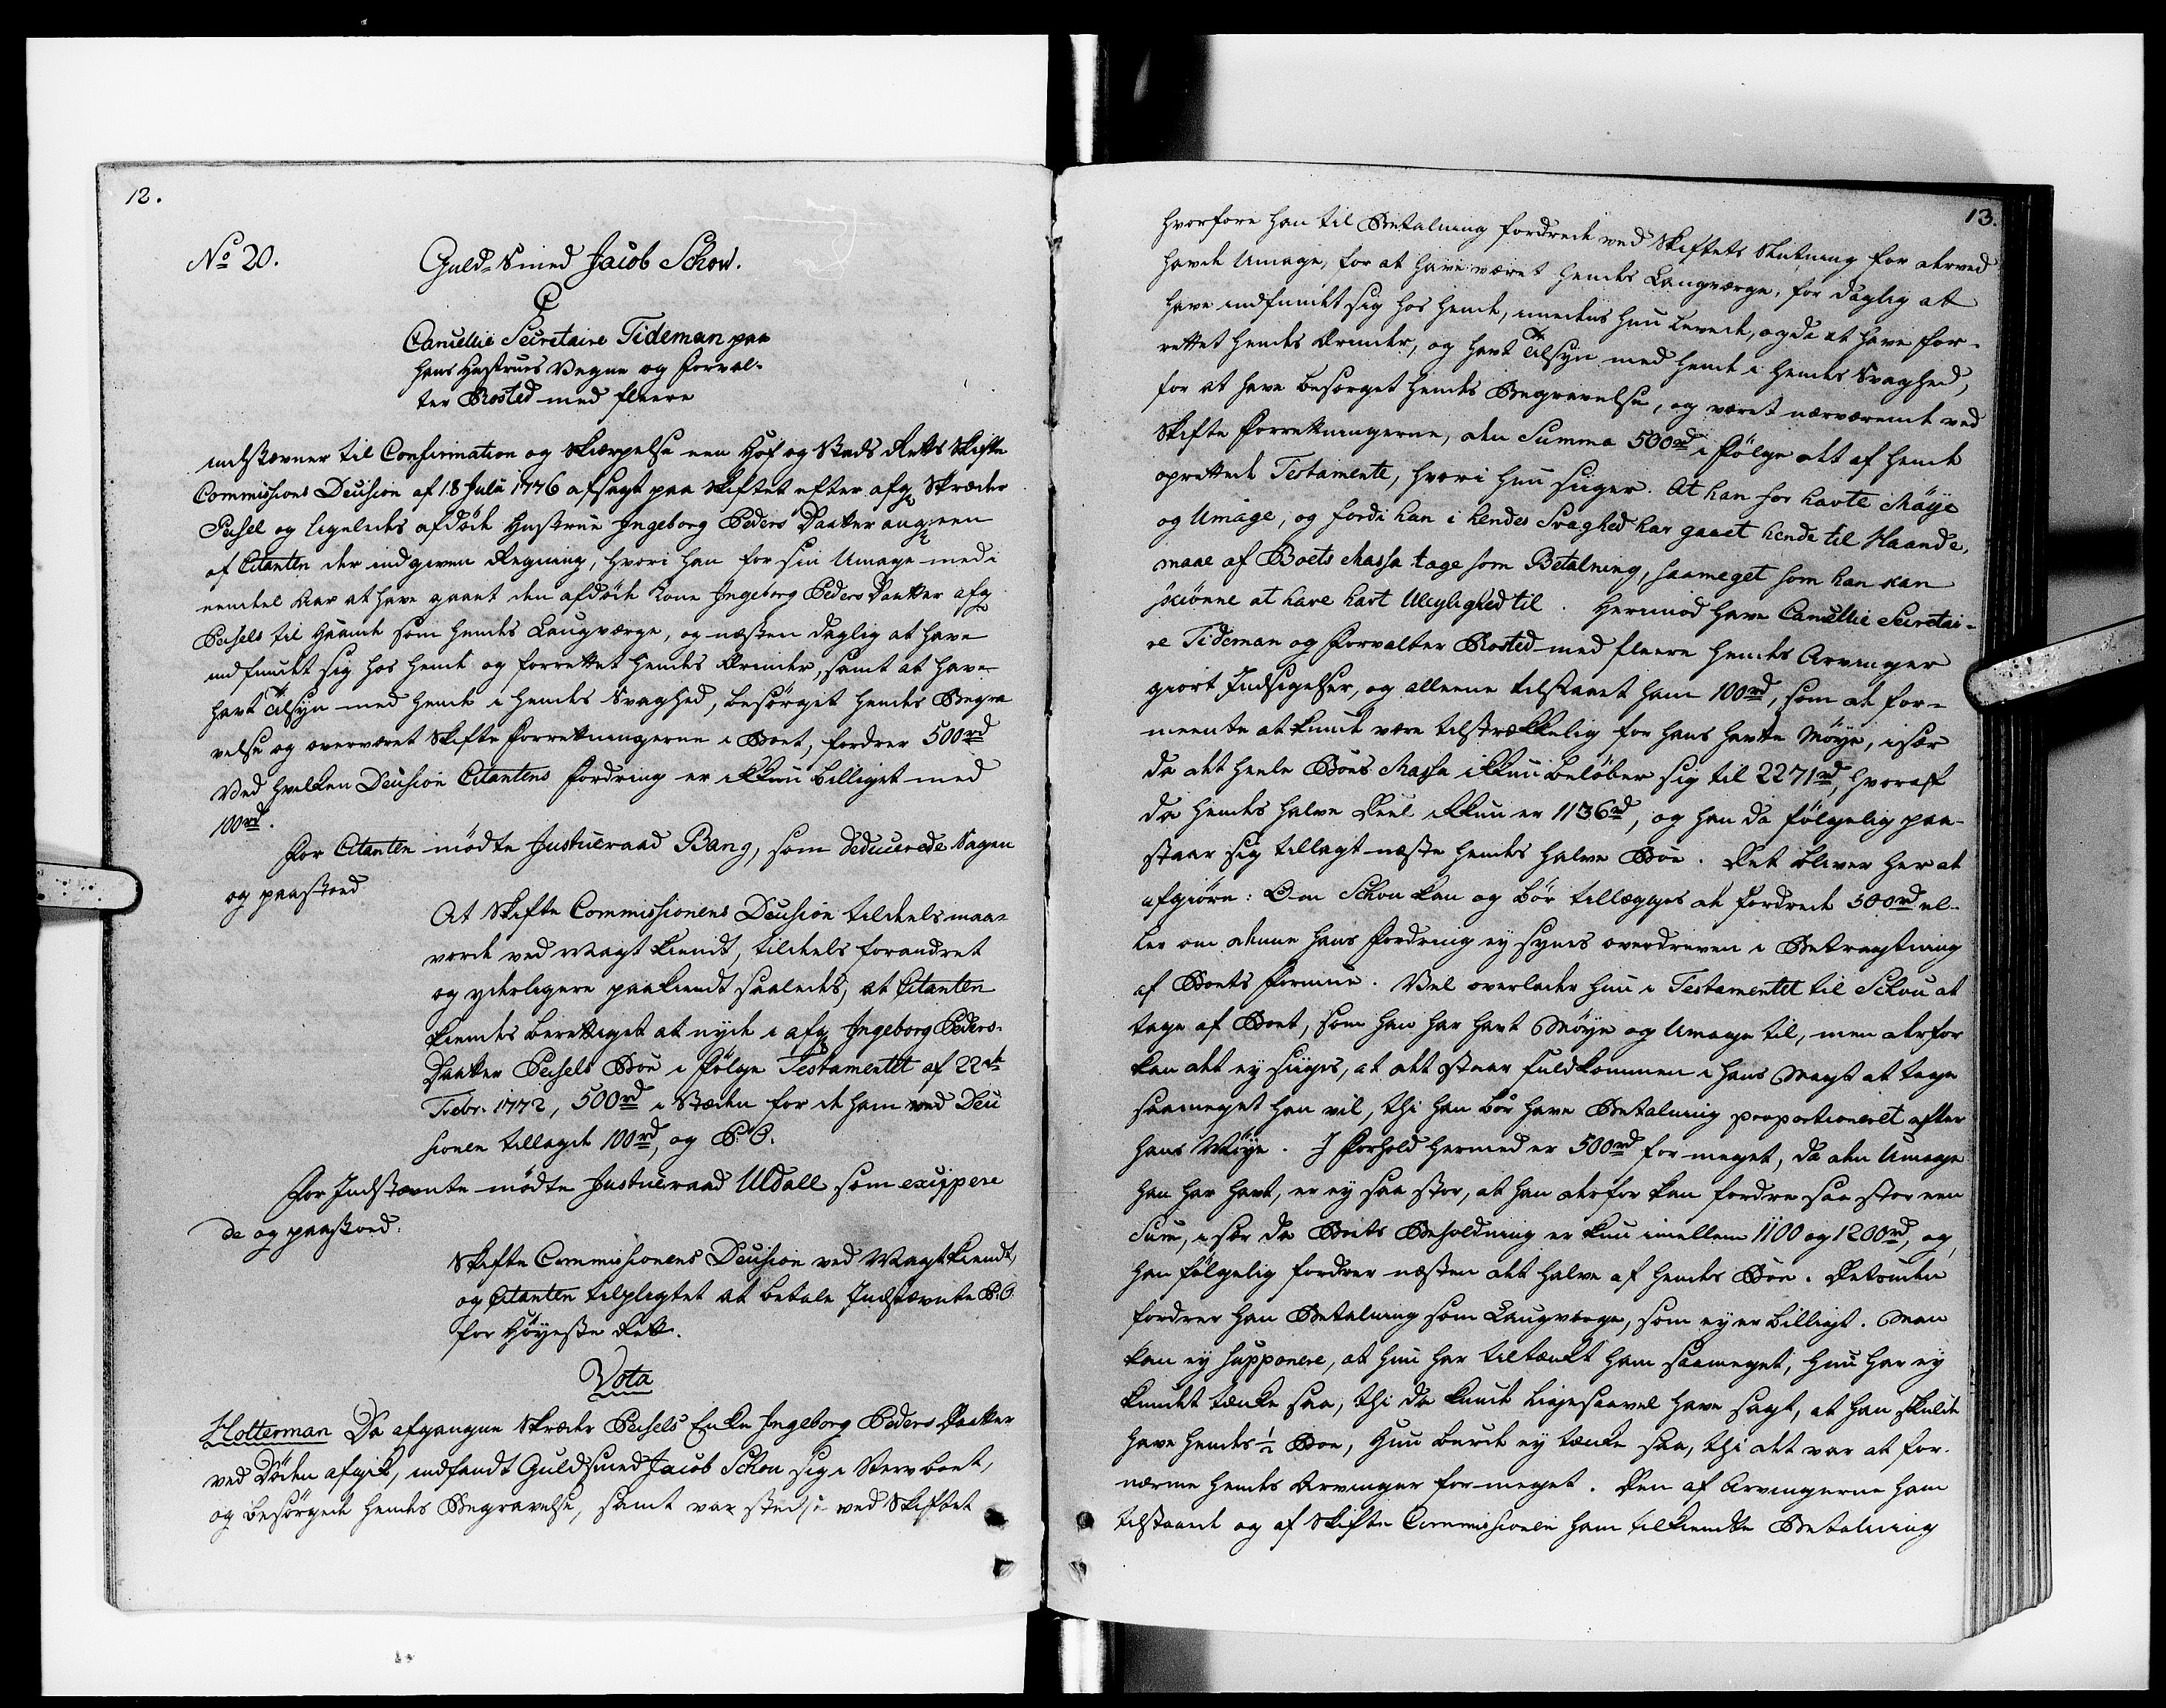 12.
No 20.
Guld-Smed Jacob Schow.
C
Cancellie Secretaire Tideman paa
hans Hustrues Vegne og Forval-
ter Rosted med fleere
indstævner til Confirmation og Skiærpelse een Hof og Stads Rettes Skifte
Commissions Decision af 18 Julii 1776 afsagt paa Skiftet efter afg Skræder
Peisel og ligeledes afdøde Hustrue Ingeborg Peders Daatter ang een
af Citanten der indgiven Regning, hvori han for sin Umage med i
neml Aar at have gaaet den afdøde Kone Ingeborg Peders Daatter afg
Peisels til Haande som hendes Laugværge, og næsten daglig at have
indfundet sig hos hende og forrettet hendes Ærinder, samt at have
havt Tilsyn med hende i hendes Svaghed, besørget hendes Begra
velse og overværet Skifte Forretningerne i Boet, fordrer 500rd
Ved hvilken Decision Citantens Fordring er ikkun billiget med
100rd.
For Citanten mødte Justiceraad Bang, som deducerede Sagen
og paastoed
At Skifte Commissionens Decision tildeels maa-
vorde ved Magt kiendt, tildeels forandret
og yderligere paakiendt saaledes, at Citanten
kiendes berettiget at nyde i afg Ingeborg Peders-
Daatter Peisels Boe i følge Testamentet af 22de
Febr. 1772, 500rd i Steden for de ham ved Deci
sionen tillagde 100rd, og P. O.
For Indstævnte mødte Justiceraad Uldall som excippere
de og paastoed:
Skifte Commissionens Decision ved Magt kiendt,
og Citanten tilpligtet at betale Indstævnte P. O.
for Høyeste Rett.
Vota
Holterman Da afgangne Skræder Peisels Enke Ingeborg Peders Daatter
ved Døden afgik, indfandt Guldsmed Jacob Schou sig i Stervboet,
og besørgede hendes Begravelse, samt var stedse ved Skiftet
13.
hvorfore han til Betalning fordrede ved Skiftets Slutning for derved
havde Umage, for at have været hendes Laugværge, for daglig at
have indfundet sig hos hende, imedens hun levede, og da at have for-
rettet hendes Ærinder, og havt Tilsyn med hende i hendes Svaghed,
for at have besørget hendes Begravelse, og været nærværende ved
Skifte Forretningerne, den Summa 500rd i følge det af hende
oprettede Testamente, hvori hun siger. At han for havte Møye
og Umage, og fordi han i hendes Svaghed har gaaet hende til Haande,
maae af Boets Massa tage som Betalning, saameget som han kan
skiønne at have havt Uleylighed til. Hermod have Cancellie Secretai-
re Tideman og Forvalter Rosted med fleere hendes Arvinger
giort Indsigelser, og alleene tilstaaet ham 100rd, som de for-
meente at kunde være tilstrækkelig for hans havte Møye, især
da det heele Boes Massa ikkun beløber sig til 2271rd, hvoraf
da hendes halve Deel ikkun er 1136rd, og han da følgelig paa-
staar sig tillagt næste hendes halve Boe. Det bliver her at
afgiøre: Om Schou kan og bør tillægges de fordrede 500rd el-
ler om denne hans Fordring ey synes overdreven i Betragtning
af Boets Formue. Vel overlader hun i Testamentet til Schou at
tage af Boet, som han har havt Møye og Umage til, men derfor
kan det ey siiges, at det staar fuldkommen i hans Magt at tage
saameget han vil, thi han bør have Betalning proportioneret efter
hans Møye. I Forhold hermed er 500rd for meget, da den Umage
han har havt, er ey saa stor, at han derfor kan fordre saa stor een
Sum, især da Boets Beholdning er kun imellem 1100 og 1200rd, og
han følgelig fordrer næsten det halve af hendes Boe. Desuden
fordrer han Betalning som Laugværge, som ey er billigt. Man
kan ey supponere, at hun har tiltænkt ham saameget, hun har ey
kundet tænke saa, thi da kunde hun ligesaavel have sagt, at han skulde
have hendes ½ Boe, Hun burde ey tænke saa, thi det var at for-
nærme hendes Arvinger for meget. Den af Arvingerne ham
tilstaaede og af Skifte Commissionen ham tilkiendte Betalning